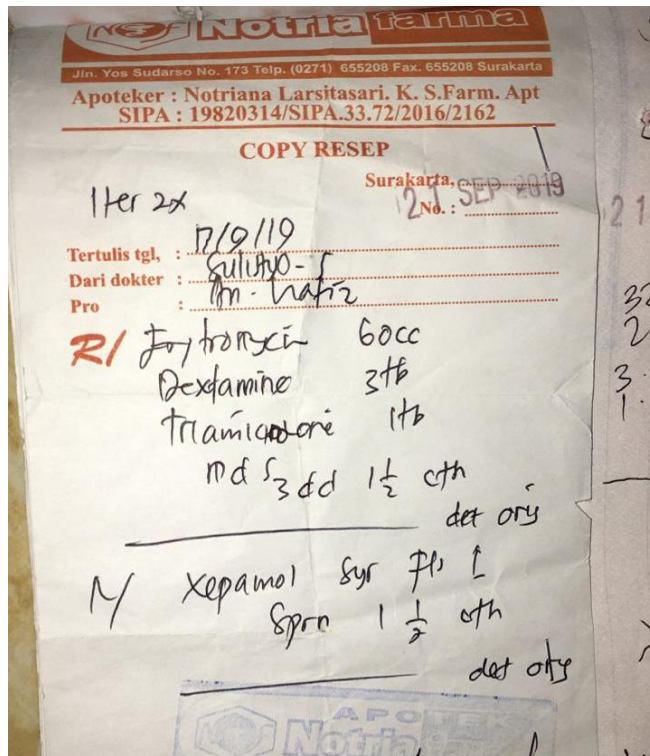 Notria farma
Jln. Yos Sudarso No. 173 Telp. (0271) 655208 Fax. 655208 Surakarta
Apoteker : Notriana Larsitasari. K. S.Farm. Apt
SIPA : 19820314/SIPA.33.72/2016/2162
COPY RESEP
Iter 2x
Surakarta,
21 SEP 2019
No. :
Tertulis tgl, : 17/9/19
Dari dokter : Sulistyo - S
Pro : An. Hafiz
R/ 60cc
Dextamine 3tb
Triamicnolone 1tb
md S 3 dd 1 1/2 cth
det orig
N/ Xepamol syr fls I
Sprn 1 1/2 cth
det orig
APOTEK
Notria